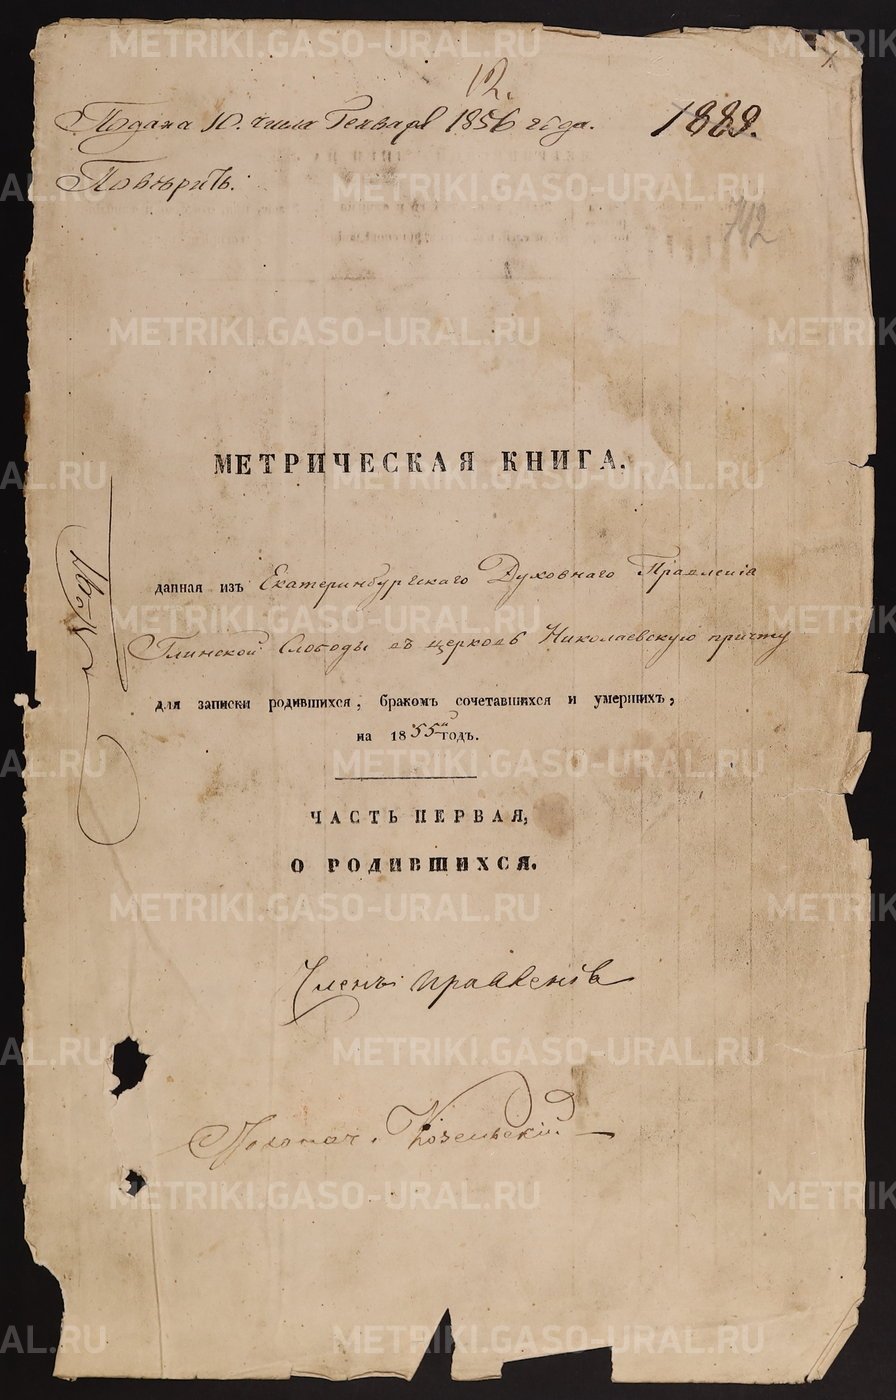 12.
Подана 10. числа Генваря 1856 года. 1889.
Повѣрить.
742
МЕТРИЧЕСКАЯ КНИГА.
данная изъ Екатеринбургскаго Духовнаго Правленія
Глинской Слободы въ церковь Николаевскую причту
для записки родившихся, бракомъ сочетавшихся и умершихъ,
на 1855й годъ.
ЧАСТЬ ПЕРВАЯ,
О РОДИВШИХСЯ.
Членъ правленія
METRIKI.GASO-URAL.RU